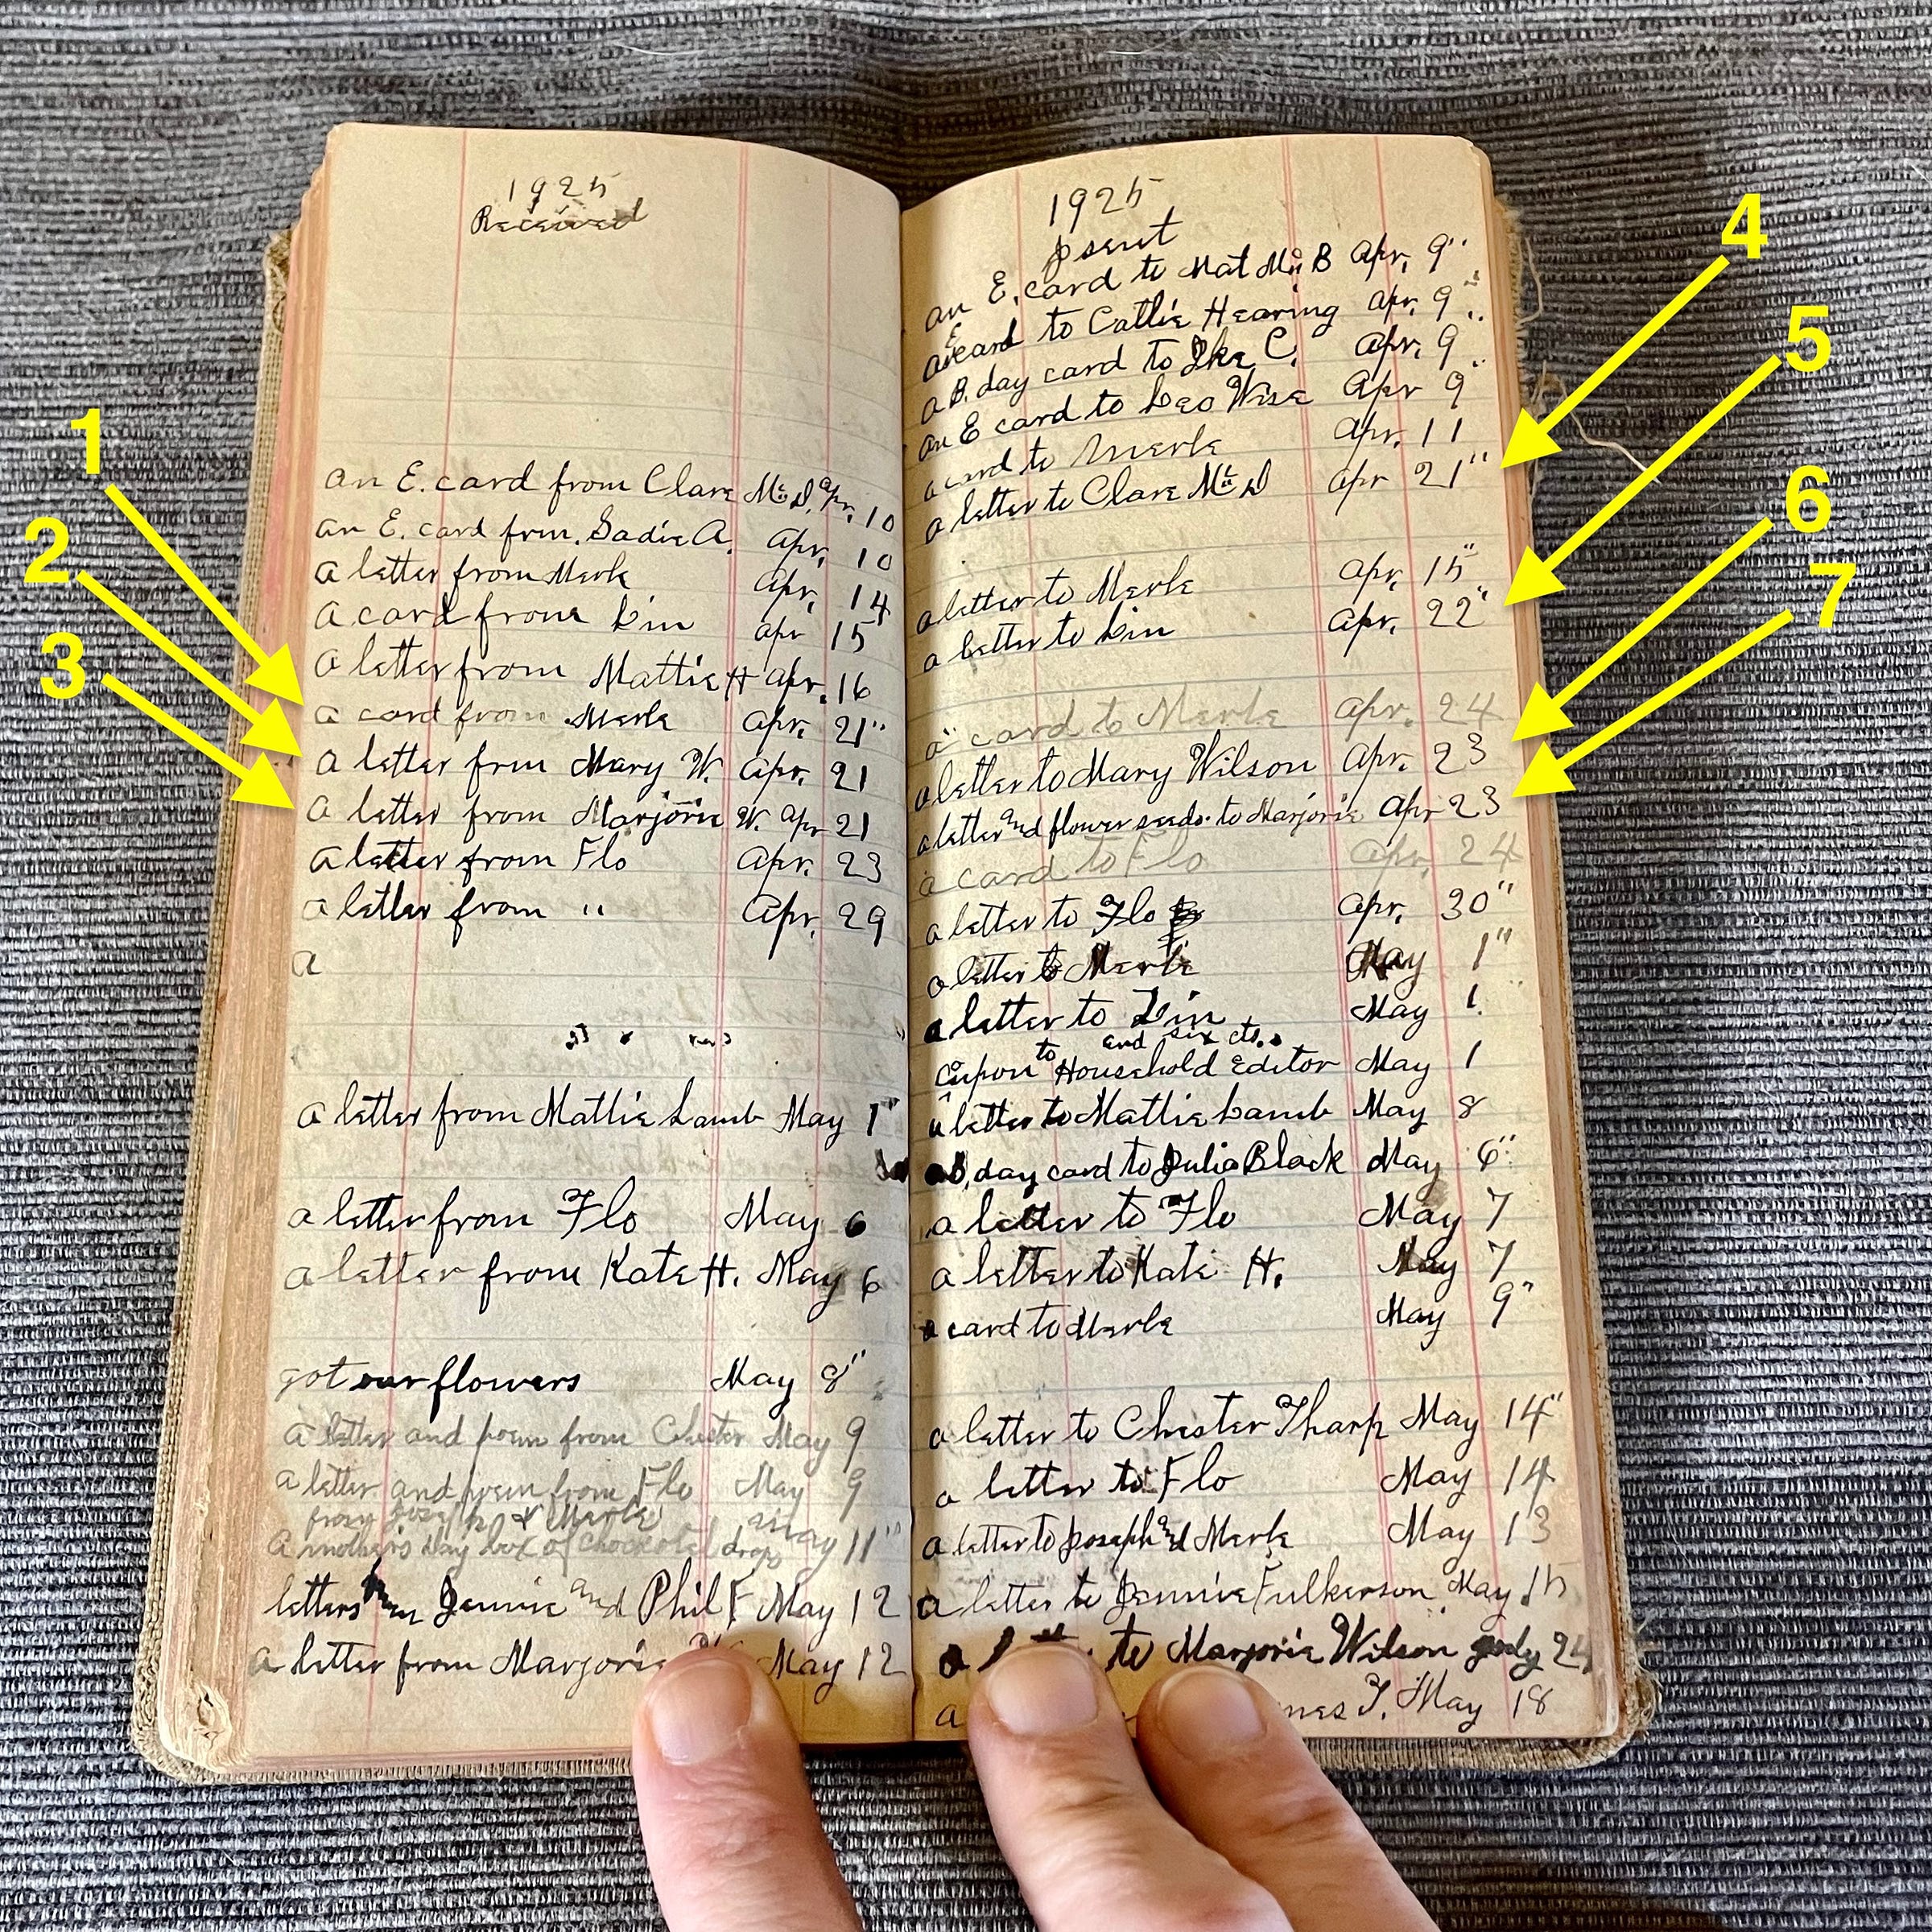 1925
Received
an E. card from Clare Mc D. Apr. 10
an E. card from. Sadie A. Apr. 10
a letter from Merle Apr. 14
a card from Lin Apr 15
a letter from Mattie H Apr. 16
a card from Merle Apr. 21"
a letter from Mary W. Apr. 21
a letter from Marjorie W. Apr 21
a letter from Flo Apr. 23
a letter from " Apr. 29
a
a letter from Mattie Lamb May 1"
a letter from Flo May 6
a letter from Kate H. May 6
got our flowers May 8"
a letter and poem from Chester May 9
a letter and poem from Flo May 9
from Joseph & Merle
A mother's Day box of chocolate drops May 11"
letters from Jennie and Phil F May 12
a letter from Marjorie May 12
1925
I sent
an E. card to Mat Mc B Apr. 9"
a E card to Callie Hearing Apr. 9"
a B. day card to Ike C. Apr. 9"
an E card to Leo Wise Apr 9"
a card to Merle Apr. 11
a letter to Clare Mc D Apr 21"
a letter to Merle Apr. 15"
a letter to Lin Apr. 22"
a" card to Merle Apr. 24
a letter to Mary Wilson Apr. 23
a letter and flower seeds to Marjorie Apr 23
a card to Flo Apr. 24
a letter to Flo Apr. 30"
a letter to Merle May 1"
a letter to Lin May 1.
and six cts.
Coupon to Household Editor May 1
a letter to Mattie Lamb May 8
a B. day card to Julia Black May 6"
a letter to Flo May 7
a letter to Kate H. May 7
a card to Merle May 9"
a letter to Chester Tharp May 14"
a letter to Flo May 14
a letter to Joseph and Merle May 13
a letter to Jennie Fulkerson May 15
a to Marjorie Wilson July 24
a T. May 18
1
2
3
4
5
6
7